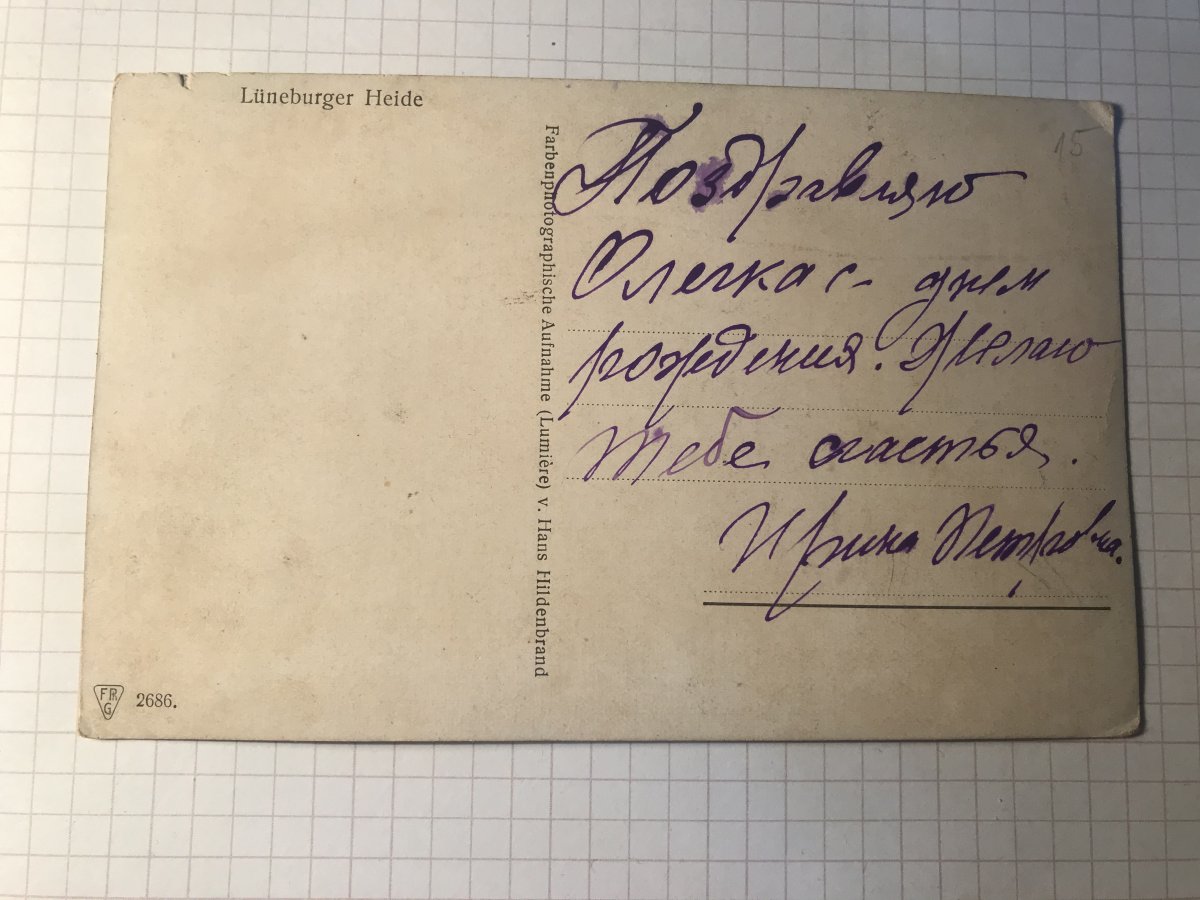 Lüneburger Heide
15
Farbenphotographische Aufnahme (Lumière) v. Hans Hildenbrand
Поздравляю
Олегка с днем
рождения. Желаю
тебе счастья.
Ирина Петровна.
FPG
2686.